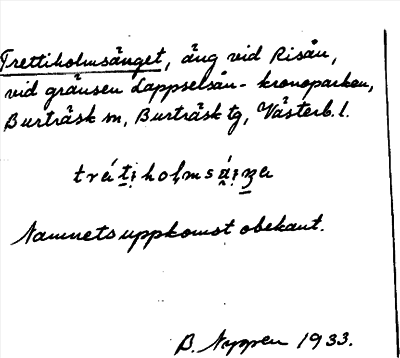 Trettiholmsänget, äng vid Risån,
vid gränsen Lappselsån - kronoparken,
Burträsk sn, Burträsk tg, Västerb. l.
Namnets uppkomst obekant.
B. Nygren 1933.